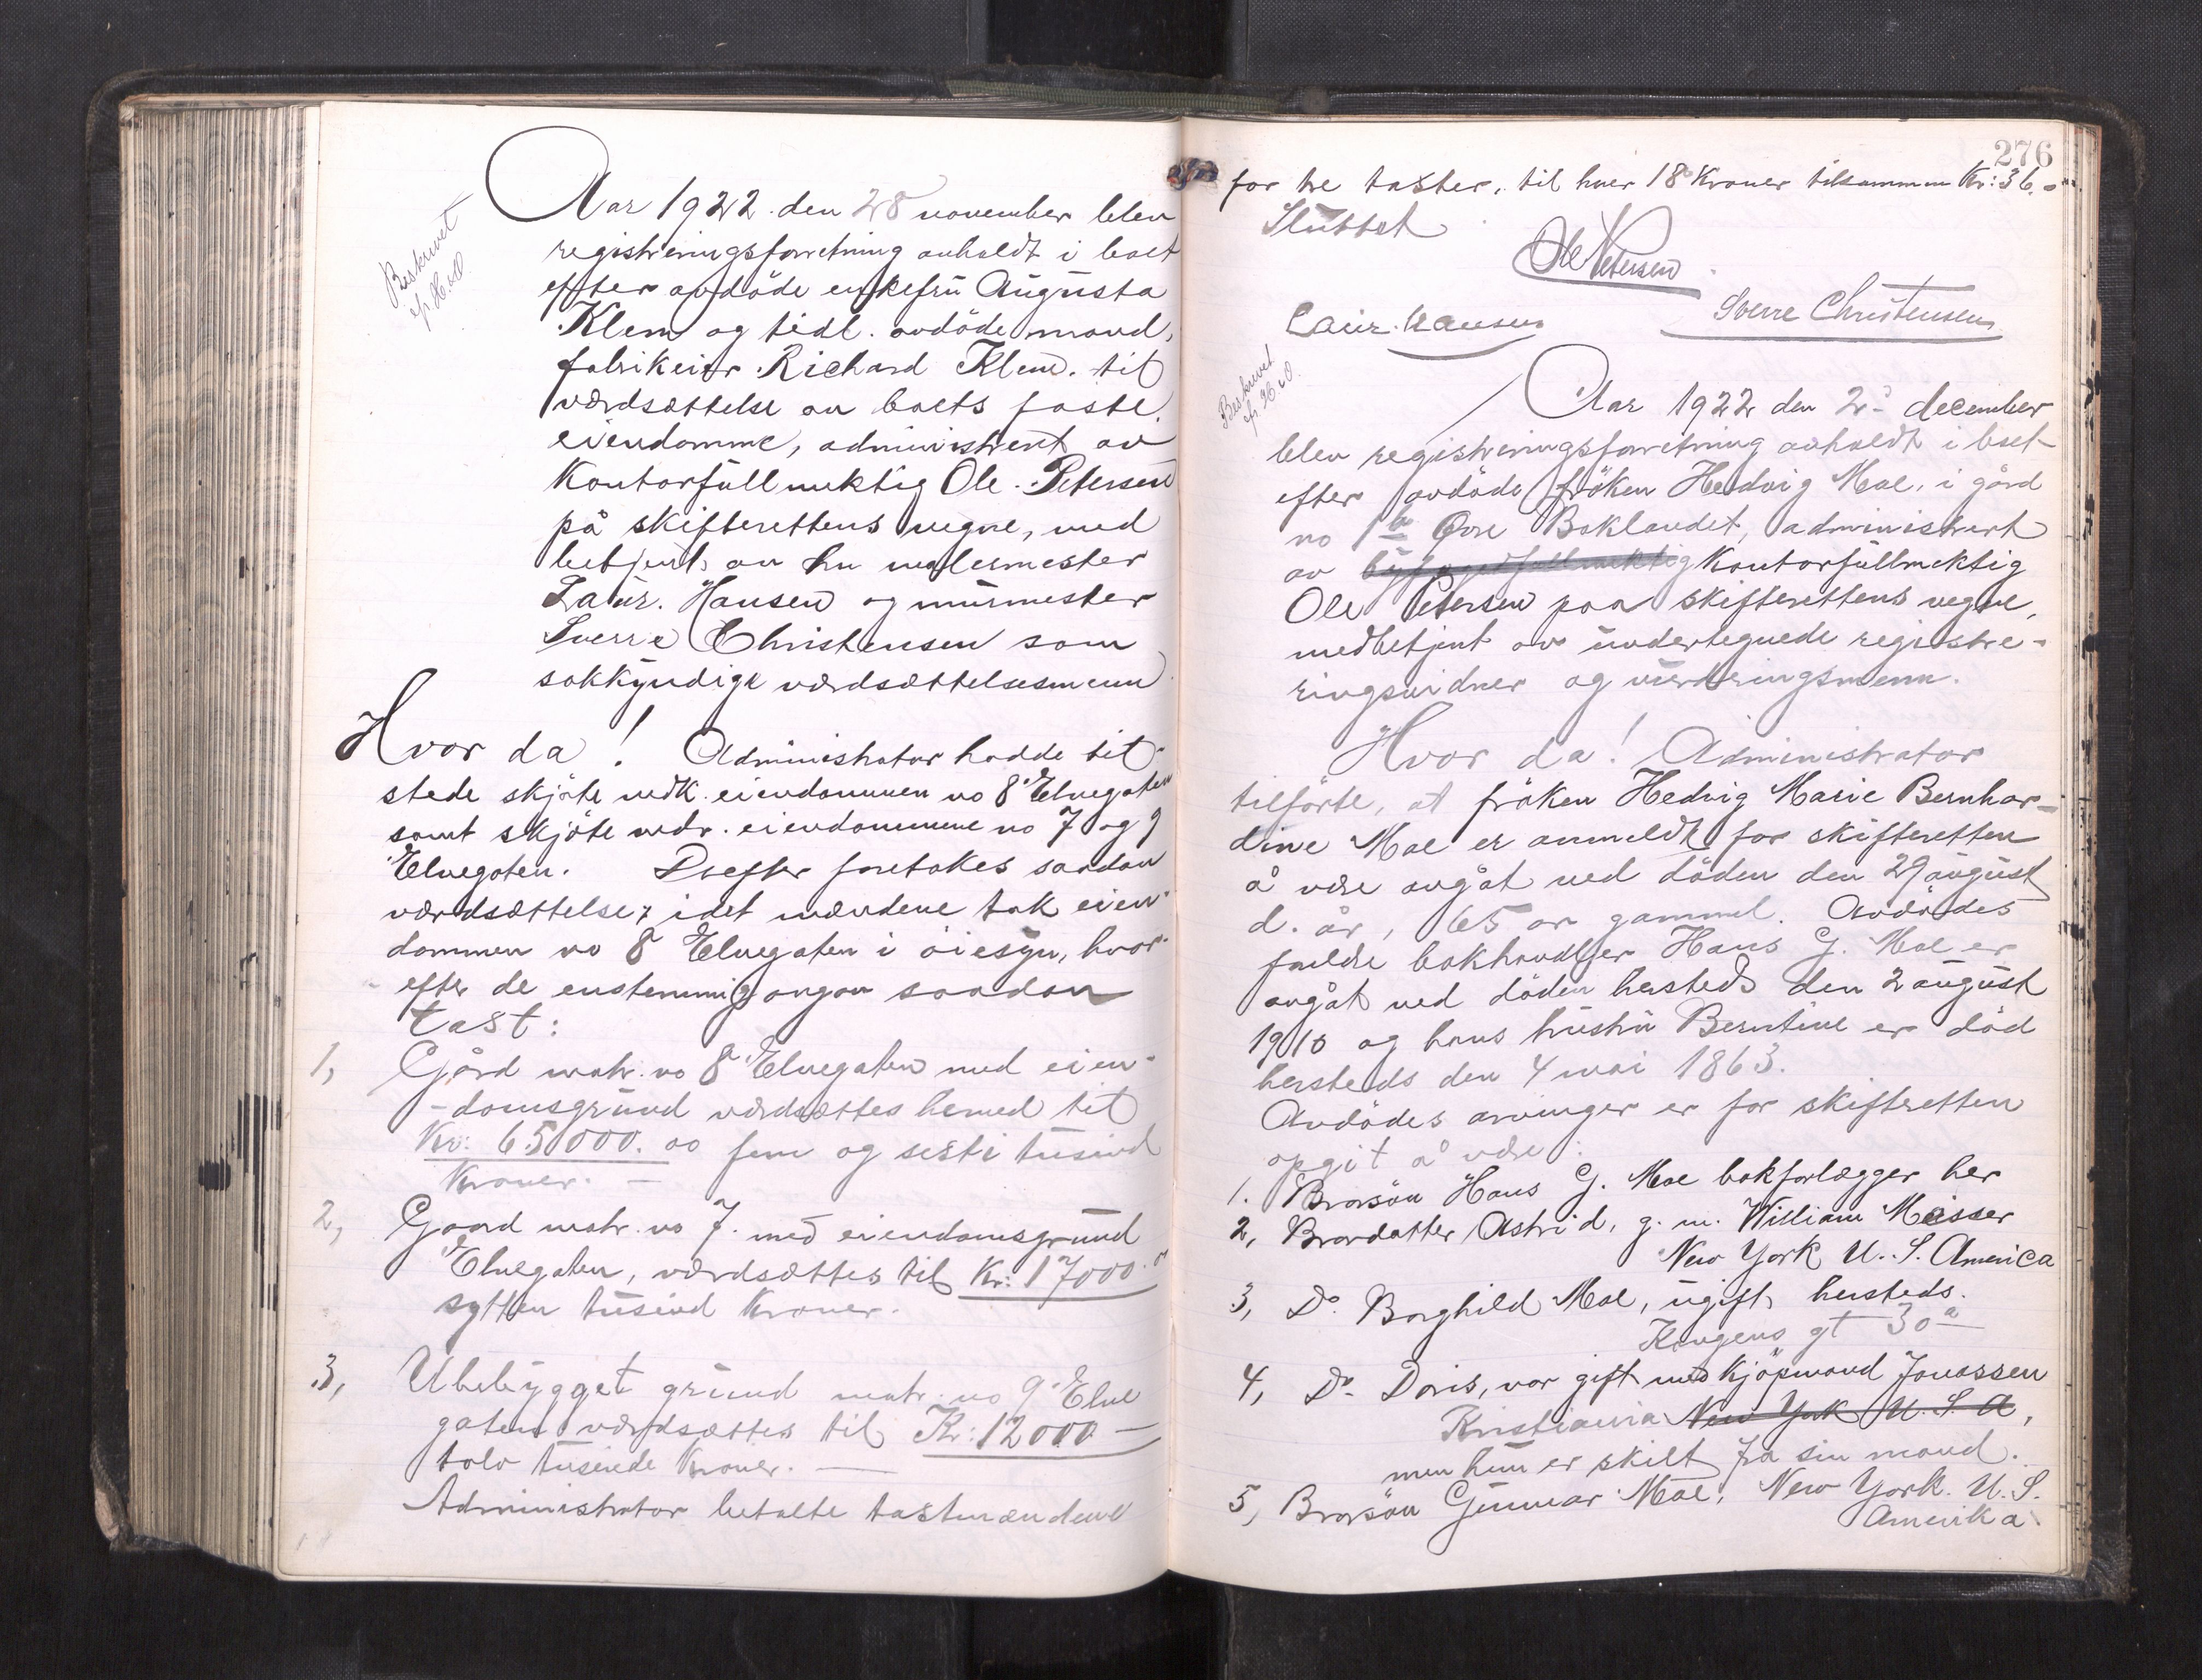 Aar 1922 den 28 november blev
registreringsforretning avholdt i boet
efter avdöde enkefru Augusta
Klem og tidl. avdöde mand,
fabrikeier Richard Klem. til
værdsættelse av boets faste
eiendomme, administrert av
Kontorfullmektig Ole Petersen
på skifterettens vegne, med
betjent av hr malermester
Laur. Hansen og murmester
Sverre Christensen som
sakkyndige værdsættelsesmenn
Beskrevet
Hvor da! Administrator hadde til
stede skjöte vedk. eiendommen no 8 Elvegaten
samt skjöte vedr. eiendommene no 7 og 9
Elvegaten. Derefter foretokes saadan
værdsættelse, idet mændene tok eien-
dommen no 8 Elvegaten i öiesyn, hvor-
efter de enstemmig avgav saadan
tast:
1, Gård matr. no 8 Elvegaten med eien-
-domsgrund værdsættes hermed til
Kr: 65000.00 fem og sesti tusind
Kroner. —
2, Gaard matr. no 7. med eiendomsgrund
Elvegaten, værdsættes til Kr: 17000.00
sytten tusind Kroner.
3, Ubebygget grund matr. no 9 Elve
gaten værdsættes til Kr: 12000 —
tolv tusinde Kroner. —
Administrator betalte tastmændene
276
for tre taster, til hver 18 Kroner tilsammen Kr: 36.-
Sluttet
Ole Petersen
Laur. Hansen
Sverre Christensen
Beskrevet
Aar 1922 den 2- december
blev registreringsforretning avholdt i boet
efter avdöde fröken Hedvig Moe, i gård
no 1b Övre Baklandet, administrert
av byfogedfullmektig Kontorfullmektig
Ole Petersen paa skifterettens vegne,
medbetjent av undertegnede registre-
ringsvidner og vurderingsmenn.
Hvor da! Administrator
tilförte, at fröken Hedvig Marie Bernhar-
dine Moe er anmeldt for skifteretten
å være avgåt ved döden den 29 august
d. år, 65 år gammel. Avdödes
forældre bokhandler Hans G. Moe er
avgåt ved döden hersteds den 2 august
1910 og hans hustru Berntine er död
hersteds den 4 mai 1863.
Avdödes arvinger er for skifteretten
opgit å være:
1. Brorsön Hans G. Moe bokforlægger her
2, Brordatter Astrid, g. m. William Meisser
New York U. S. America
3, Do. Borghild Moe, ugift, hersteds.
Kongens gt 30a
4, Do- Doris, var gift med kjöpmand Jonassen
Kristiania New York U. S. A,
men hun er skilt fra sin mand.
5, Brorsön Gunnar Moe, New York. U. S.
Amerika.